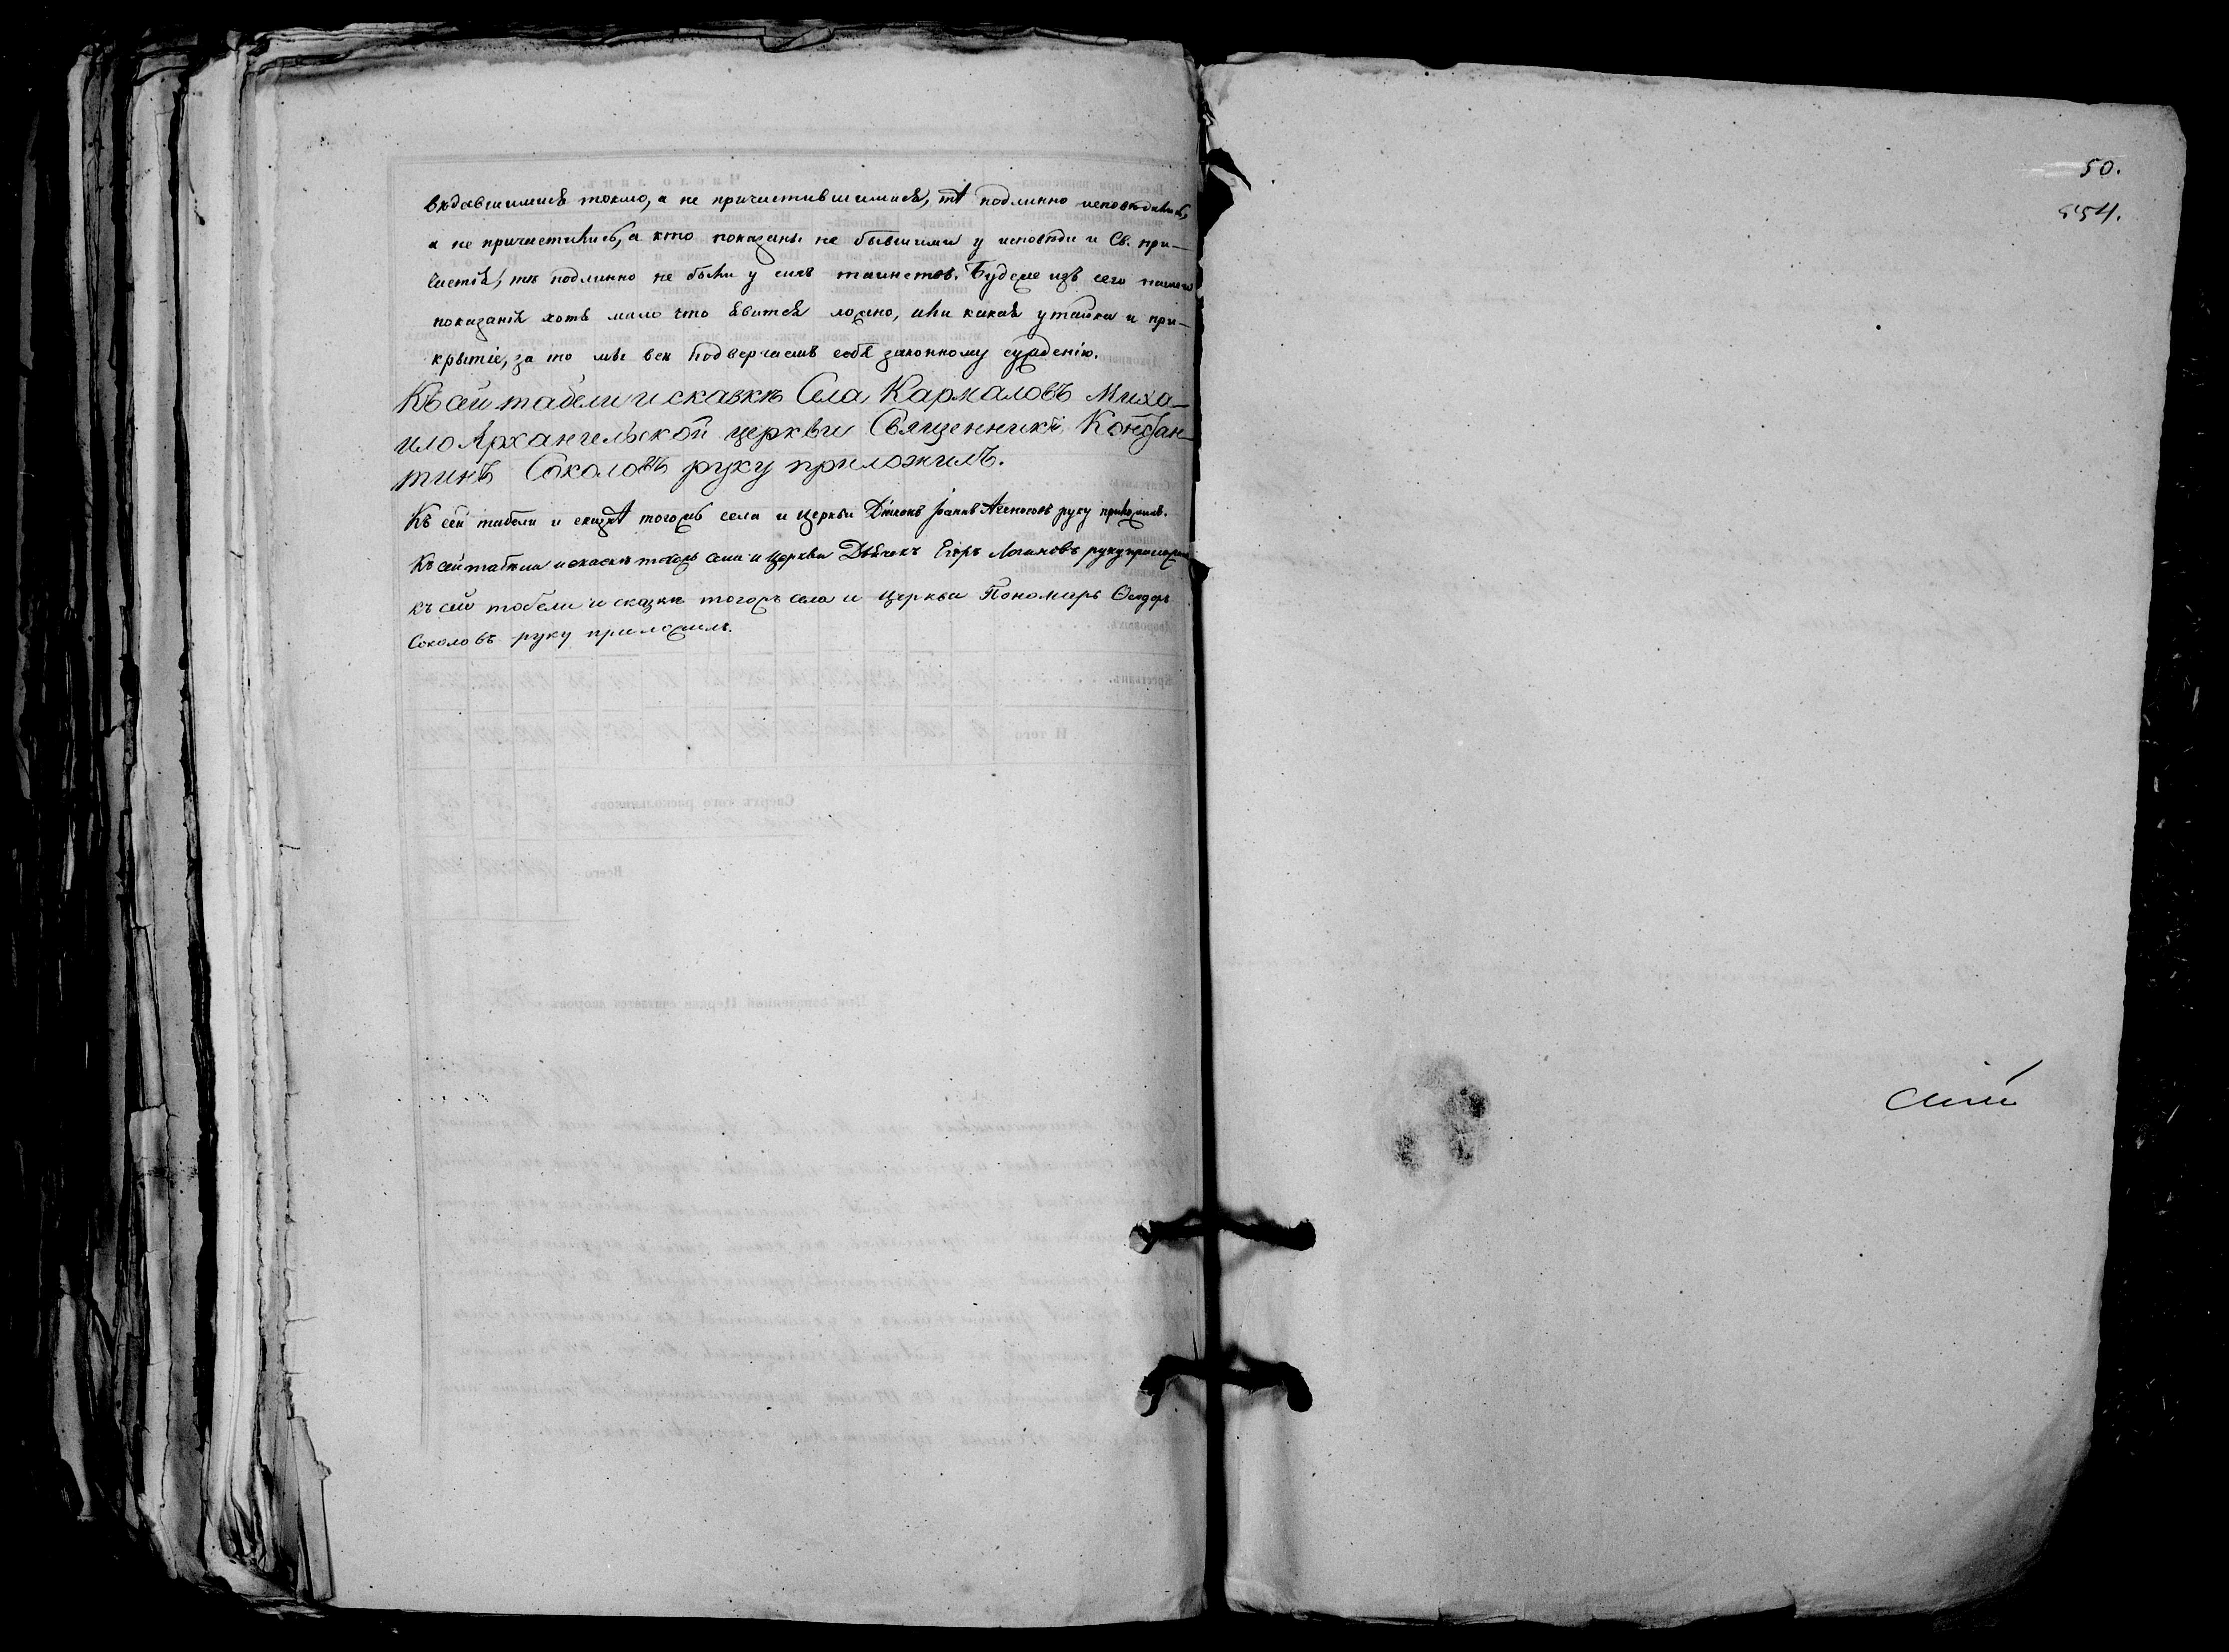 вѣдавшимися токмо, а не причастившимися, тѣ подлинно исповѣдались,
а не причастились, а кто показаны не бывшими у исповѣди и Св. при-
частія, тѣ подлинно не были у сихъ таинствъ. Будеже изъ сего нашего
показанія хоть мало что явится ложно, или какая утайка и при-
крытіе, за то мы всѣ подвергаемъ себя законному сужденію.
Къ сей табели и сказкѣ Села Кармаловъ Миха-
ило Архангельской церкви Священникъ Констан-
тинъ Соколовъ руку приложилъ.
Къ сей табели и сказкѣ тогожъ села и Церкви Діаконъ Іоаннъ руку приложилъ.
Къ сей табели и сказкѣ тогожъ села и Церкви Дьячекъ Егоръ Логиновъ руку приложилъ
къ сей табели и сказкѣ тогожъ села и Церкви Пономарь Ѳеодоръ
Соколовъ руку приложилъ.
50.
554.